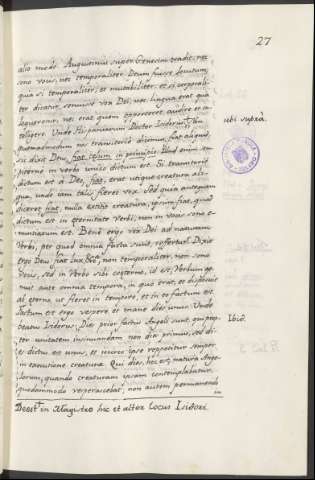 27
alio modo. Augustinus super Genesim tradit, nec
sono vocis, nec temporaliter Deum fuisse locutum,
quia si temporaliter, et mutabiliter: et si corporali-
ter dicatur, sonuisse vox Dei, nec lingua erat qua
loqueretur, nec erat quem oporteret audire et in-
telligere. Unde Hispaniarum Doctor Isidorus:
quemadmodum nos transitorie dicimus, fiat aliquid,
sic dixit Deus, fiat cœlum in principio. Illud enim sem-
piterno in verbo unico dictum est. Si transitorie
dictum est a Deo, fiat, erat utique creatura ali-
qua, unde jam talis fieret vox. Sed quia antequam
diceret fiat, nulla extitit creatura, ipsum fiat, quod
dictum est in æternitate Verbi, non in vocis sono e-
nuntiatum est. Bene ergo vox Dei ad naturam
Verbi, per quod omnia facta sunt, refertur. Dixit
ergo Deus, fiat lux, non temporaliter, non sono
vocis, sed in Verbo sibi coæterno, id est, Verbum ge-
nuit ante omnia tempora, in quo erat, et disposuit
ab æterno, ut fieret in tempore, et in eo factum est.
Factum est ergo vespere, et mane dies unus. Unde
beatus Isidorus: Die prior facti Angeli sunt, propter
unitatem insinuandam non die primus, sed di-
es dictus est unus, et idcirco ipse repetitur semper
in executione creaturæ. Qui dies, hoc est, natura Ange-
lorum, quando creaturam ipsam contemplabatur,
quodammodo vesperascebat, non autem permanendo
ubi suprà.
Ibid.
Deest in Magistro hic et alter locus Isidori.